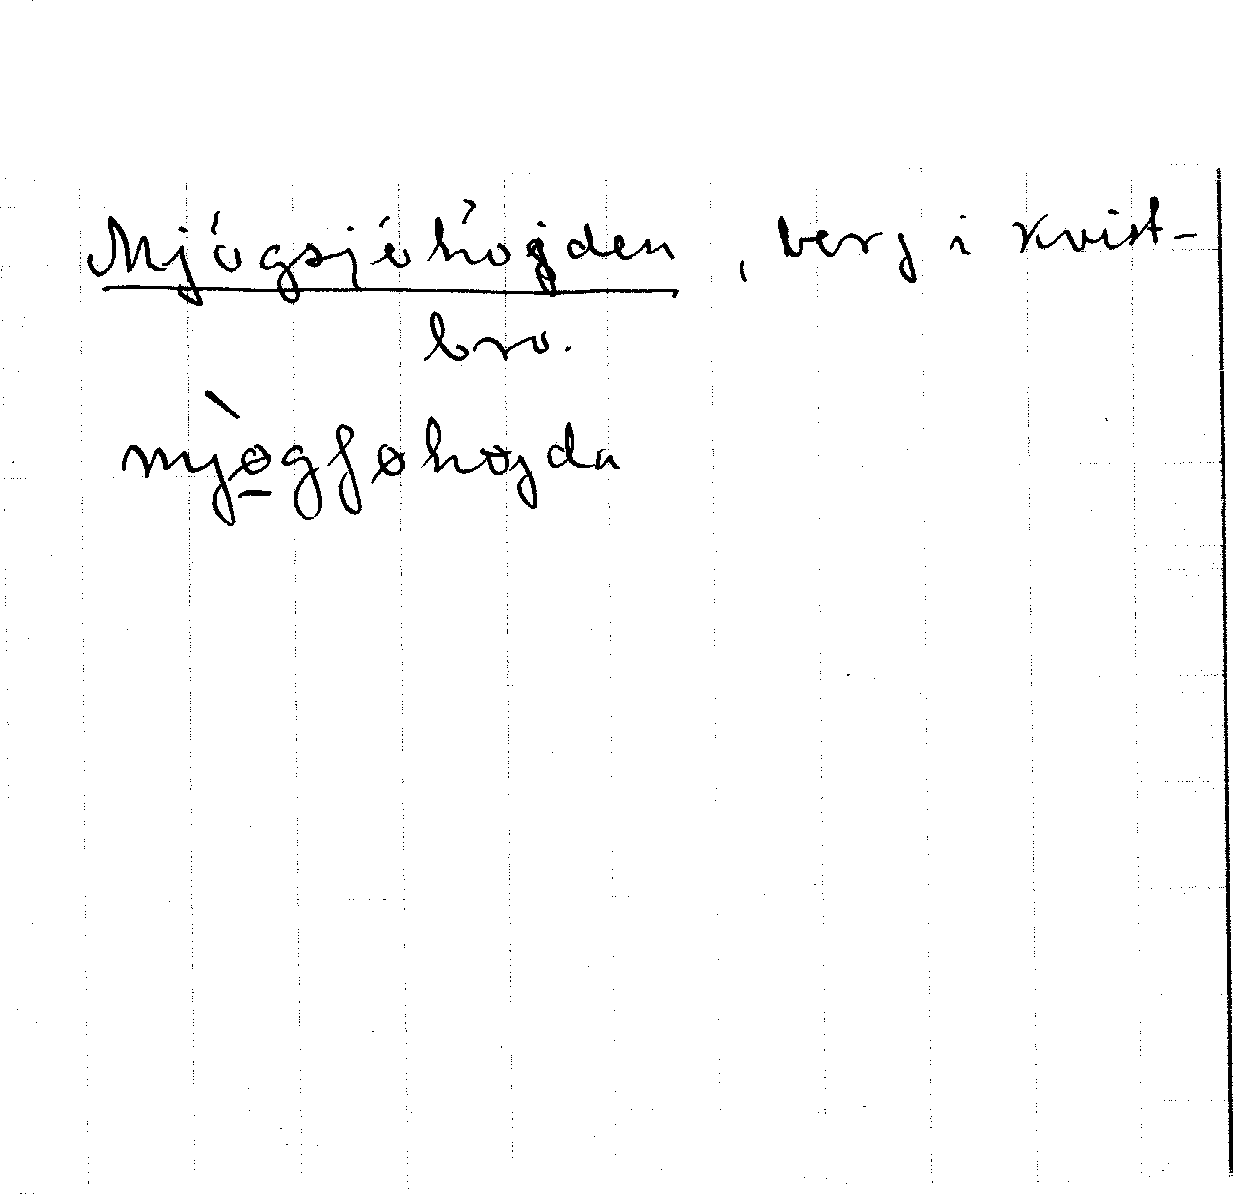 Mjögsjöhöjden, berg i Kvist-
bro.
mjø̱̀gʃøhøjda